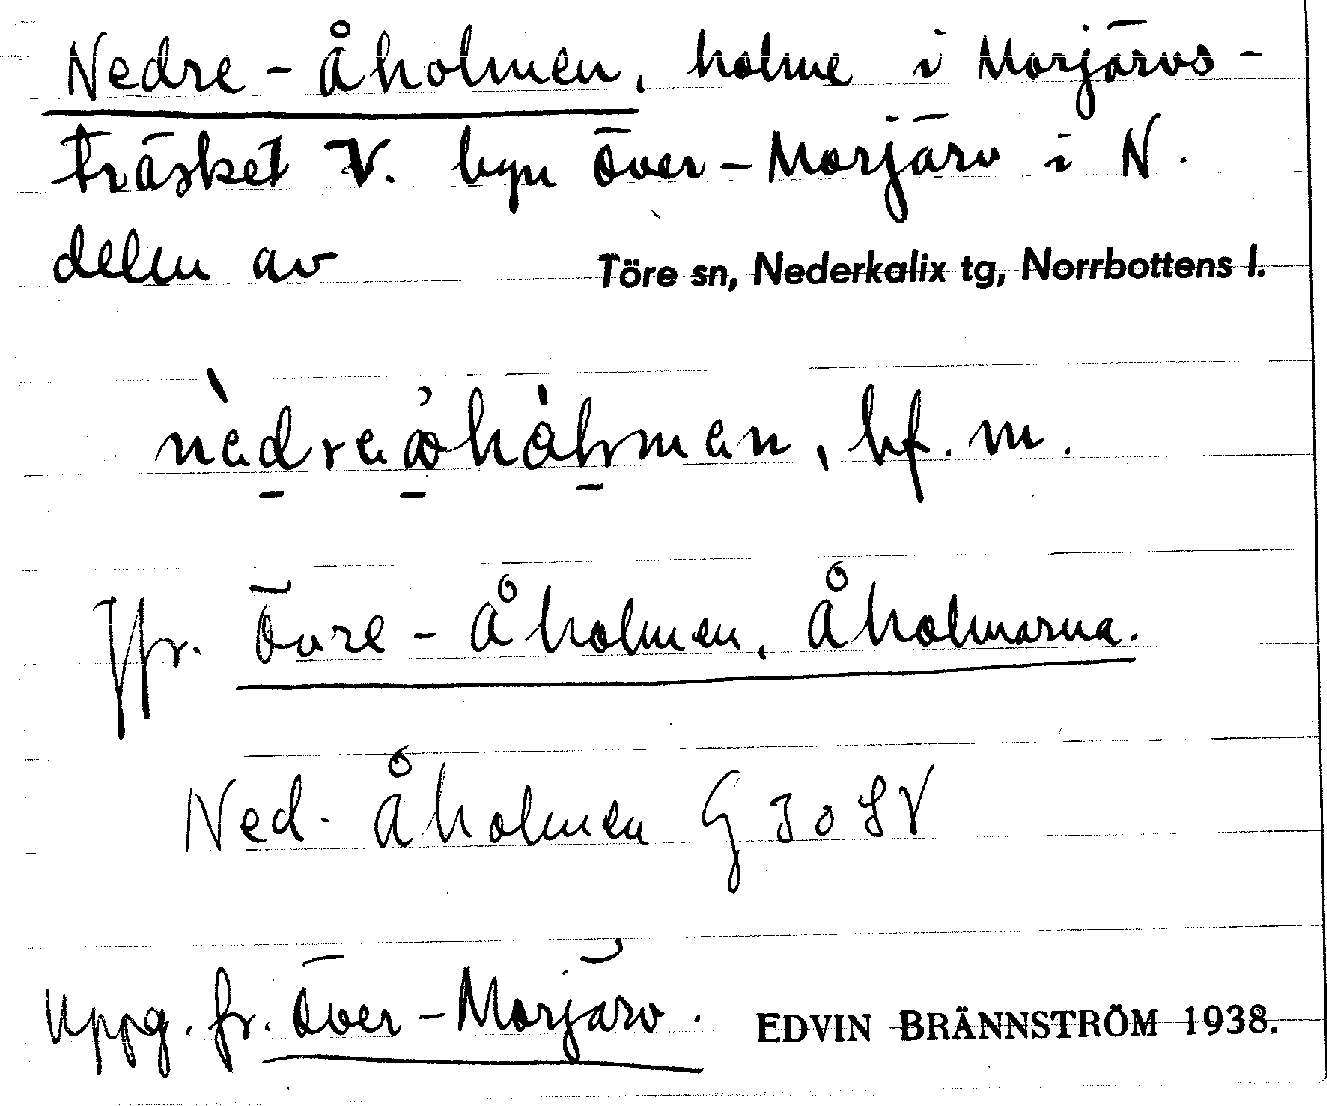 Nedre-Åholmen, holme i Morjärvs-
träsket V. byn Över-Morjärv i N.
delen av Töre sn, Nederkalix tg, Norrbottens l.
bf. m.
Jfr. Övre-Åholmen, Åholmarna.
Ned. Åholmen G 30 SV
Uppg. fr. Över-Morjärv. EDVIN BRÄNNSTRÖM 1938.